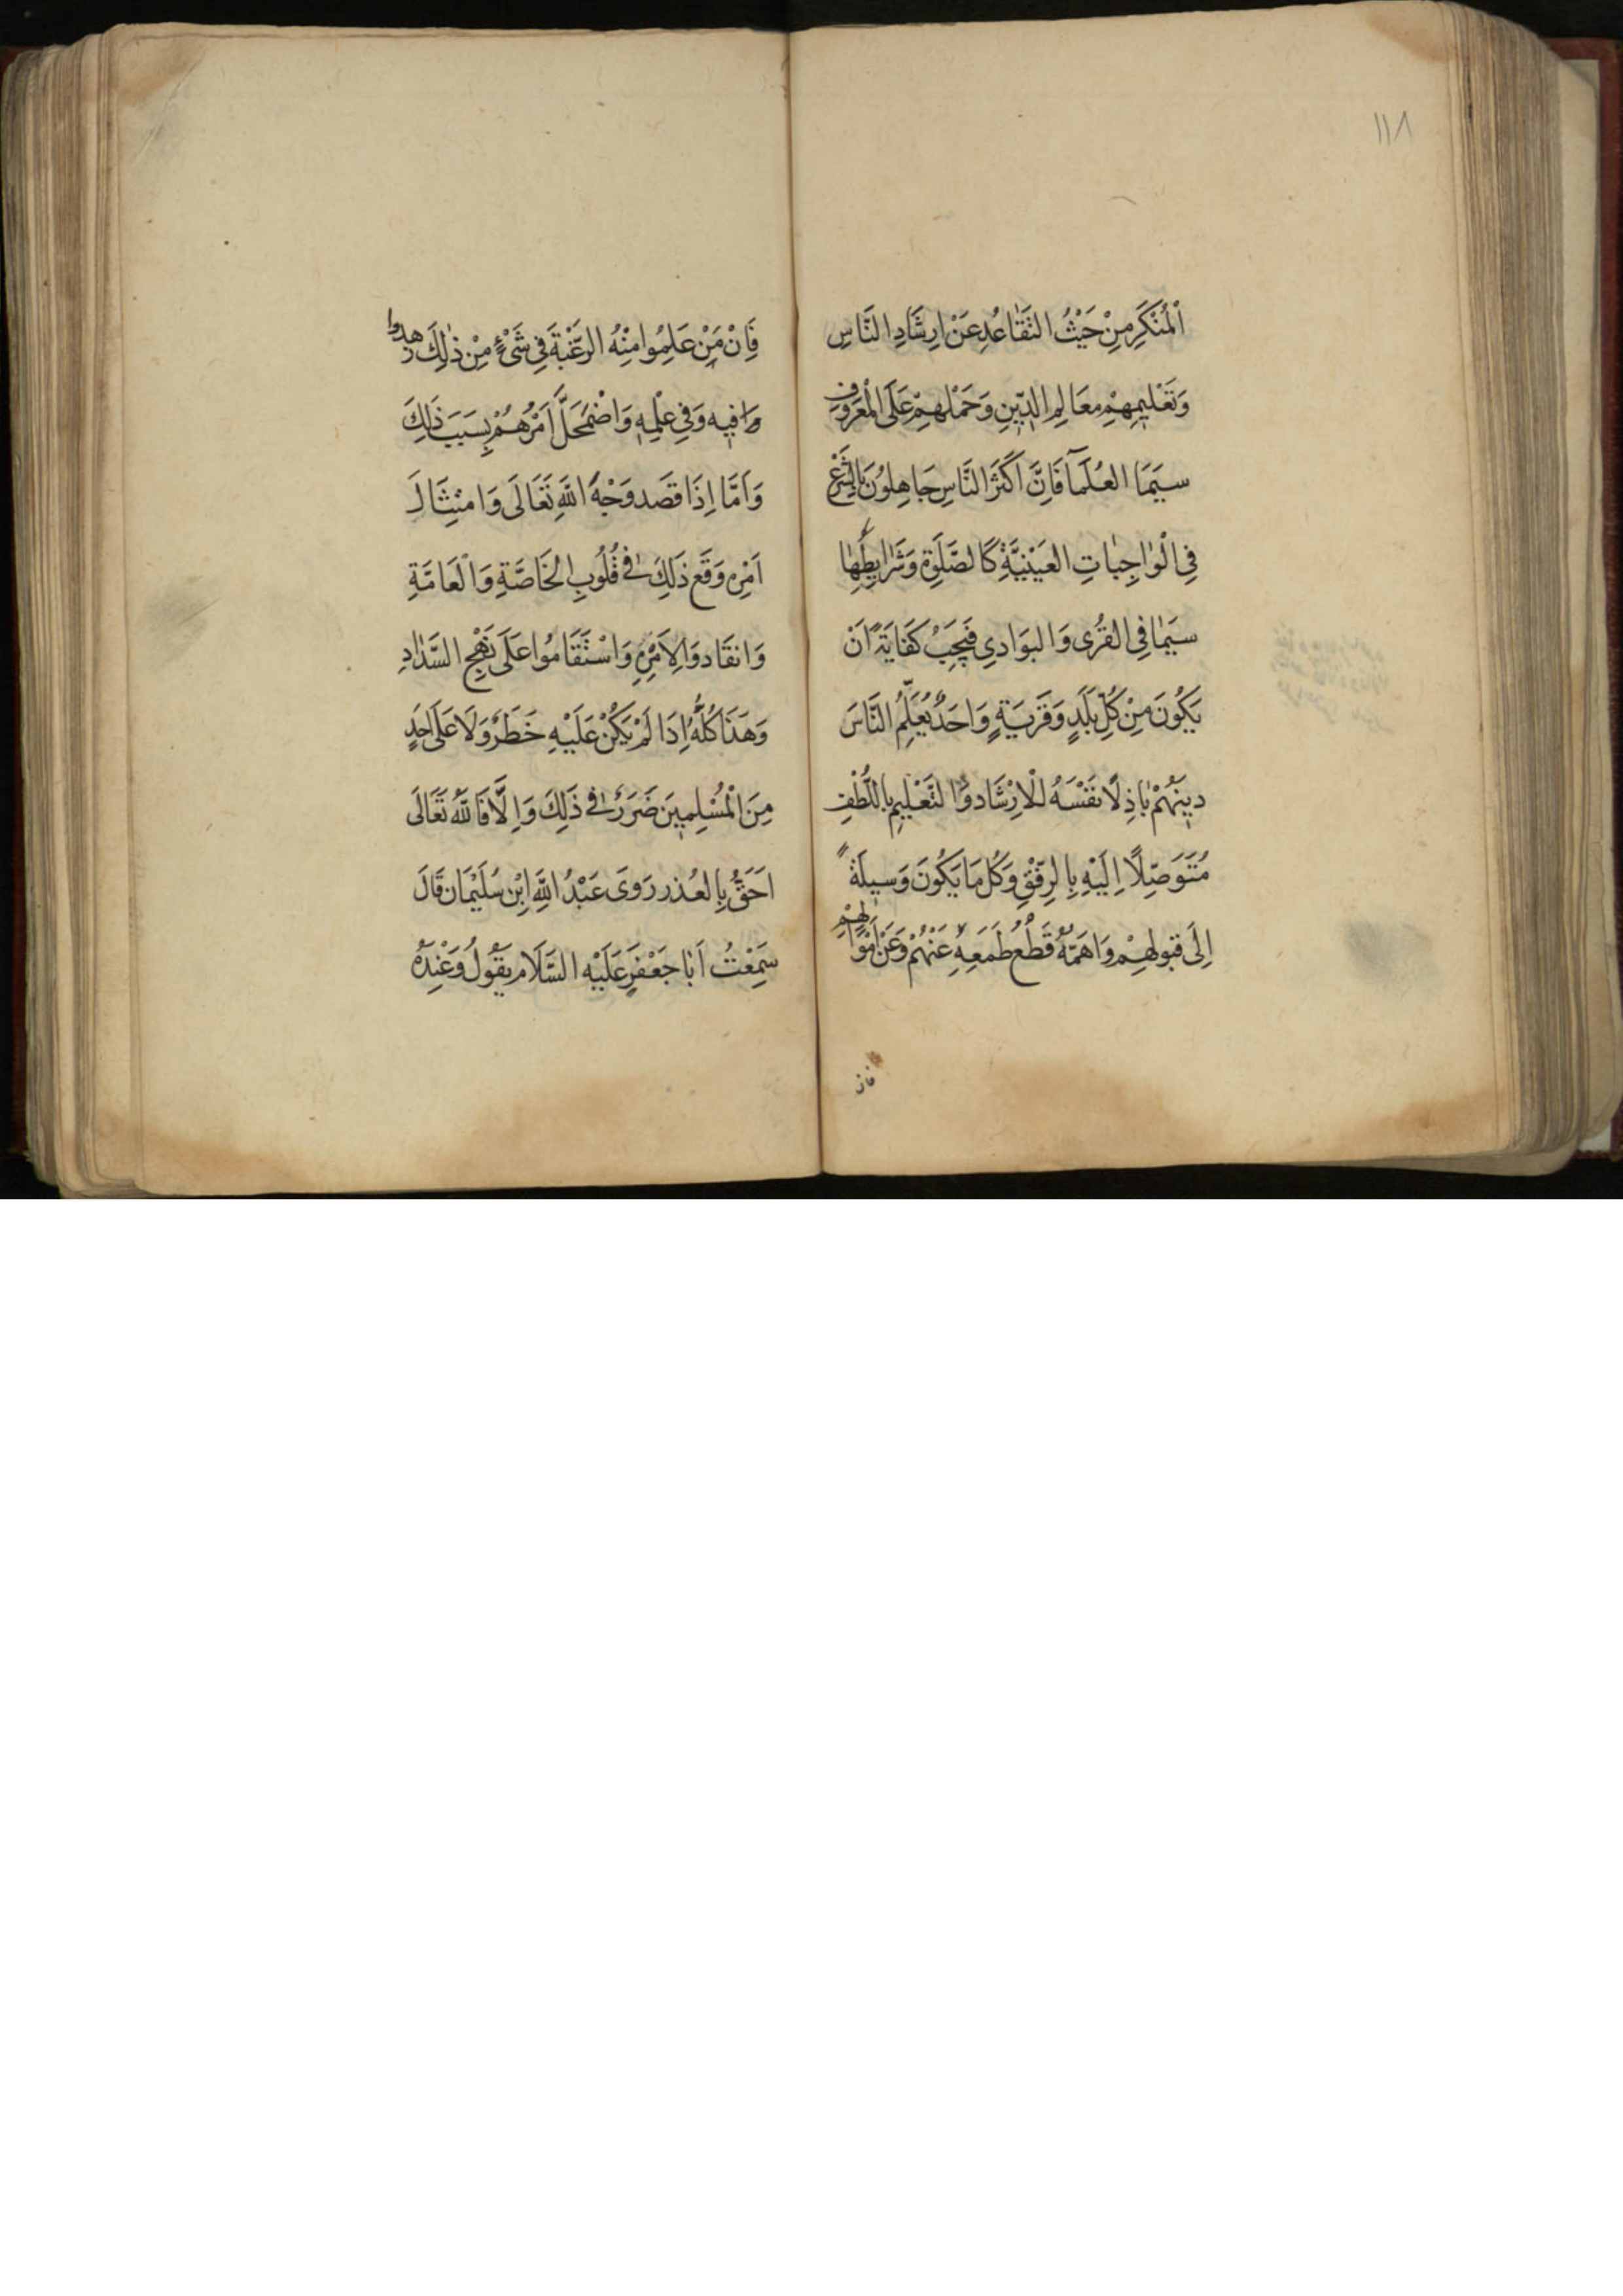 ١١٨
اَلْمُنْكَرِ مِنْ حَيْثُ التَّقَاعُدِ عَنْ اِرشَادِ النَّاسِ
وَتَعْلِيمِهِمْ مَعَالِمِ الدِّينِ وَحَمْلِهِمْ عَلَى الْمَعْرُوفِ
سِيَّمَا العُلَمآ فَاِنَّ اَكْثَرَ النَّاسِ جَاهِلُونَ بِالشَّرْعِ
فِي الْوَاجِبَاتِ العَيْنِيَّةِ كَالصَّلَوةِ وَشَرَايِطِهَا
سِيَمَا فِي القُرى وَالبَوَادِي فَيَجِبُ كَفَايَةً اَنْ
يَكُونَ مِنْ كُلِّ بَلَدٍ وَقَرْيَةٍ وَاحَدٌ يُعَلِّمُ النَّاسَ
دِينَهُمْ بَاذِلًا نَفْسَهُ لِلْاِرْشَادِ وَالتَّعْلِيمِ بِاللُّطْفِ
مُتَوَصِّلًا اِلَيْهِ بِالرِّفْقِ وَكُل مَا يَكُونَ وَسِيلَةً
اِلَى قَبُولِهِمْ وَاَهَمُّهُ قَطْعُ طَمَعِهِ عَنْهُمْ وَعَنْ اَمْوَالِهِمْ
فان
فَاِنْ مَنْ عَلِمُوا مِنْهُ الرَّغْبَةَ فِي شَيْءٍ مِنْ ذٰلِكَ زهدوا
وَافيه وَفِي عِلْمِهِ وَاضْمَحَلَّ اَمْرُهُمْ بِسَبَبِ ذَلِكَ
وَاَمَّا اِذَا قَصَد وَجْهَ اللَّهِ تَعَالَى وَامْتِثَالـ
اَمْرِهِ وَقَعَ ذَلِكَ فِي قُلُوبِ الخَاصَّةِ وَالْعَامَّةِ
وَانقَادوَا لِاَمْرِهِ وَاسْتَقَامُوا عَلَى نَهْجِ السَّدَادِ
وَهَذَا كُلُّهُ اِذَا لَمْ يَكُنْ عَلَيْهِ خَطَرٌ وَلَا عَلَى اَحَدٍ
مِنَ الْمُسْلِمِينَ ضَرَرٌ فِي ذَلِكَ وَاِلَّا فَاللَّهُ تَعَالَى
اَحَقُّ بِالعُذرِ رَوَى عَبْدُ اللَّهِ اِبْنِ سُلَيْمَان قَالَ
سَمِعْتُ اَبَا جَعْفَرٍ عَلَيْهِ السَّلَام يَقُولُ وَعِنْدَهُ